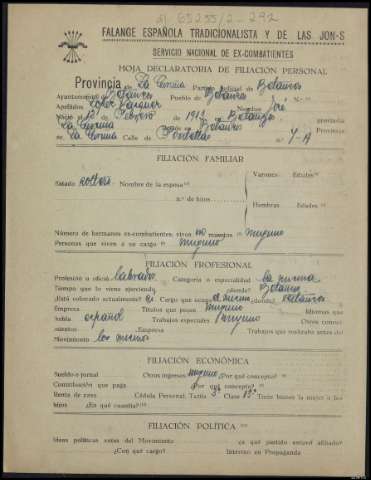 a) 65255/2-292
FALANGE ESPAÑOLA TRADICIONALISTA Y DE LAS JON-S
SERVICIO NACIONAL DE EX-COMBATIENTES
HOJA DECLARATORIA DE FILIACIÓN PERSONAL
Provincia de La Coruña Partido Judicial de Betanzos
Ayuntamiento de Betanzos Pueblo de Betanzos
Apellidos López Vázquez Nombre José
Nació el 12 Febrero de 1913 en Betanzos provincia
La Coruña Betanzos Provincia
de La Coruña Calle de nº 4-A
FILIACIÓN FAMILIAR
Estado soltero Nombre de la esposa Varones Edades
n.º de hijos
Hembras Edades
Número de hermanos ex-combatientes, vivos no muertos ninguno
Personas que viven a su cargo ninguno
FILIACIÓN PROFESIONAL
Profesión u oficio labrador Categoría o especialidad la misma
Tiempo que lo viene ejerciendo ¿dónde? Betanzos
¿Está colocado actualmente? si Cargo que ocupa el mismo ¿dónde? Betanzos
Empresa Títulos que posee ninguno Idiomas que
habla español Trabajos especiales ninguno Otros conoci-
mientos Empresa Trabajos que realizaba antes del
Movimiento los mismos
FILIACIÓN ECONÓMICA
Sueldo o jornal Otros ingresos ninguno ¿Por qué concepto?
Contribución que paga ¿Por qué concepto?
Renta de casa Cédula Personal: Tarifa 3ª Clase 13ª Tiene bienes la mujer o los
hijos ¿En qué cuantía?
FILIACIÓN POLÍTICA
Ideas políticas antes del Movimiento ¿a qué partido estuvo afiliado?
¿Con qué cargo? Intervino en Propaganda